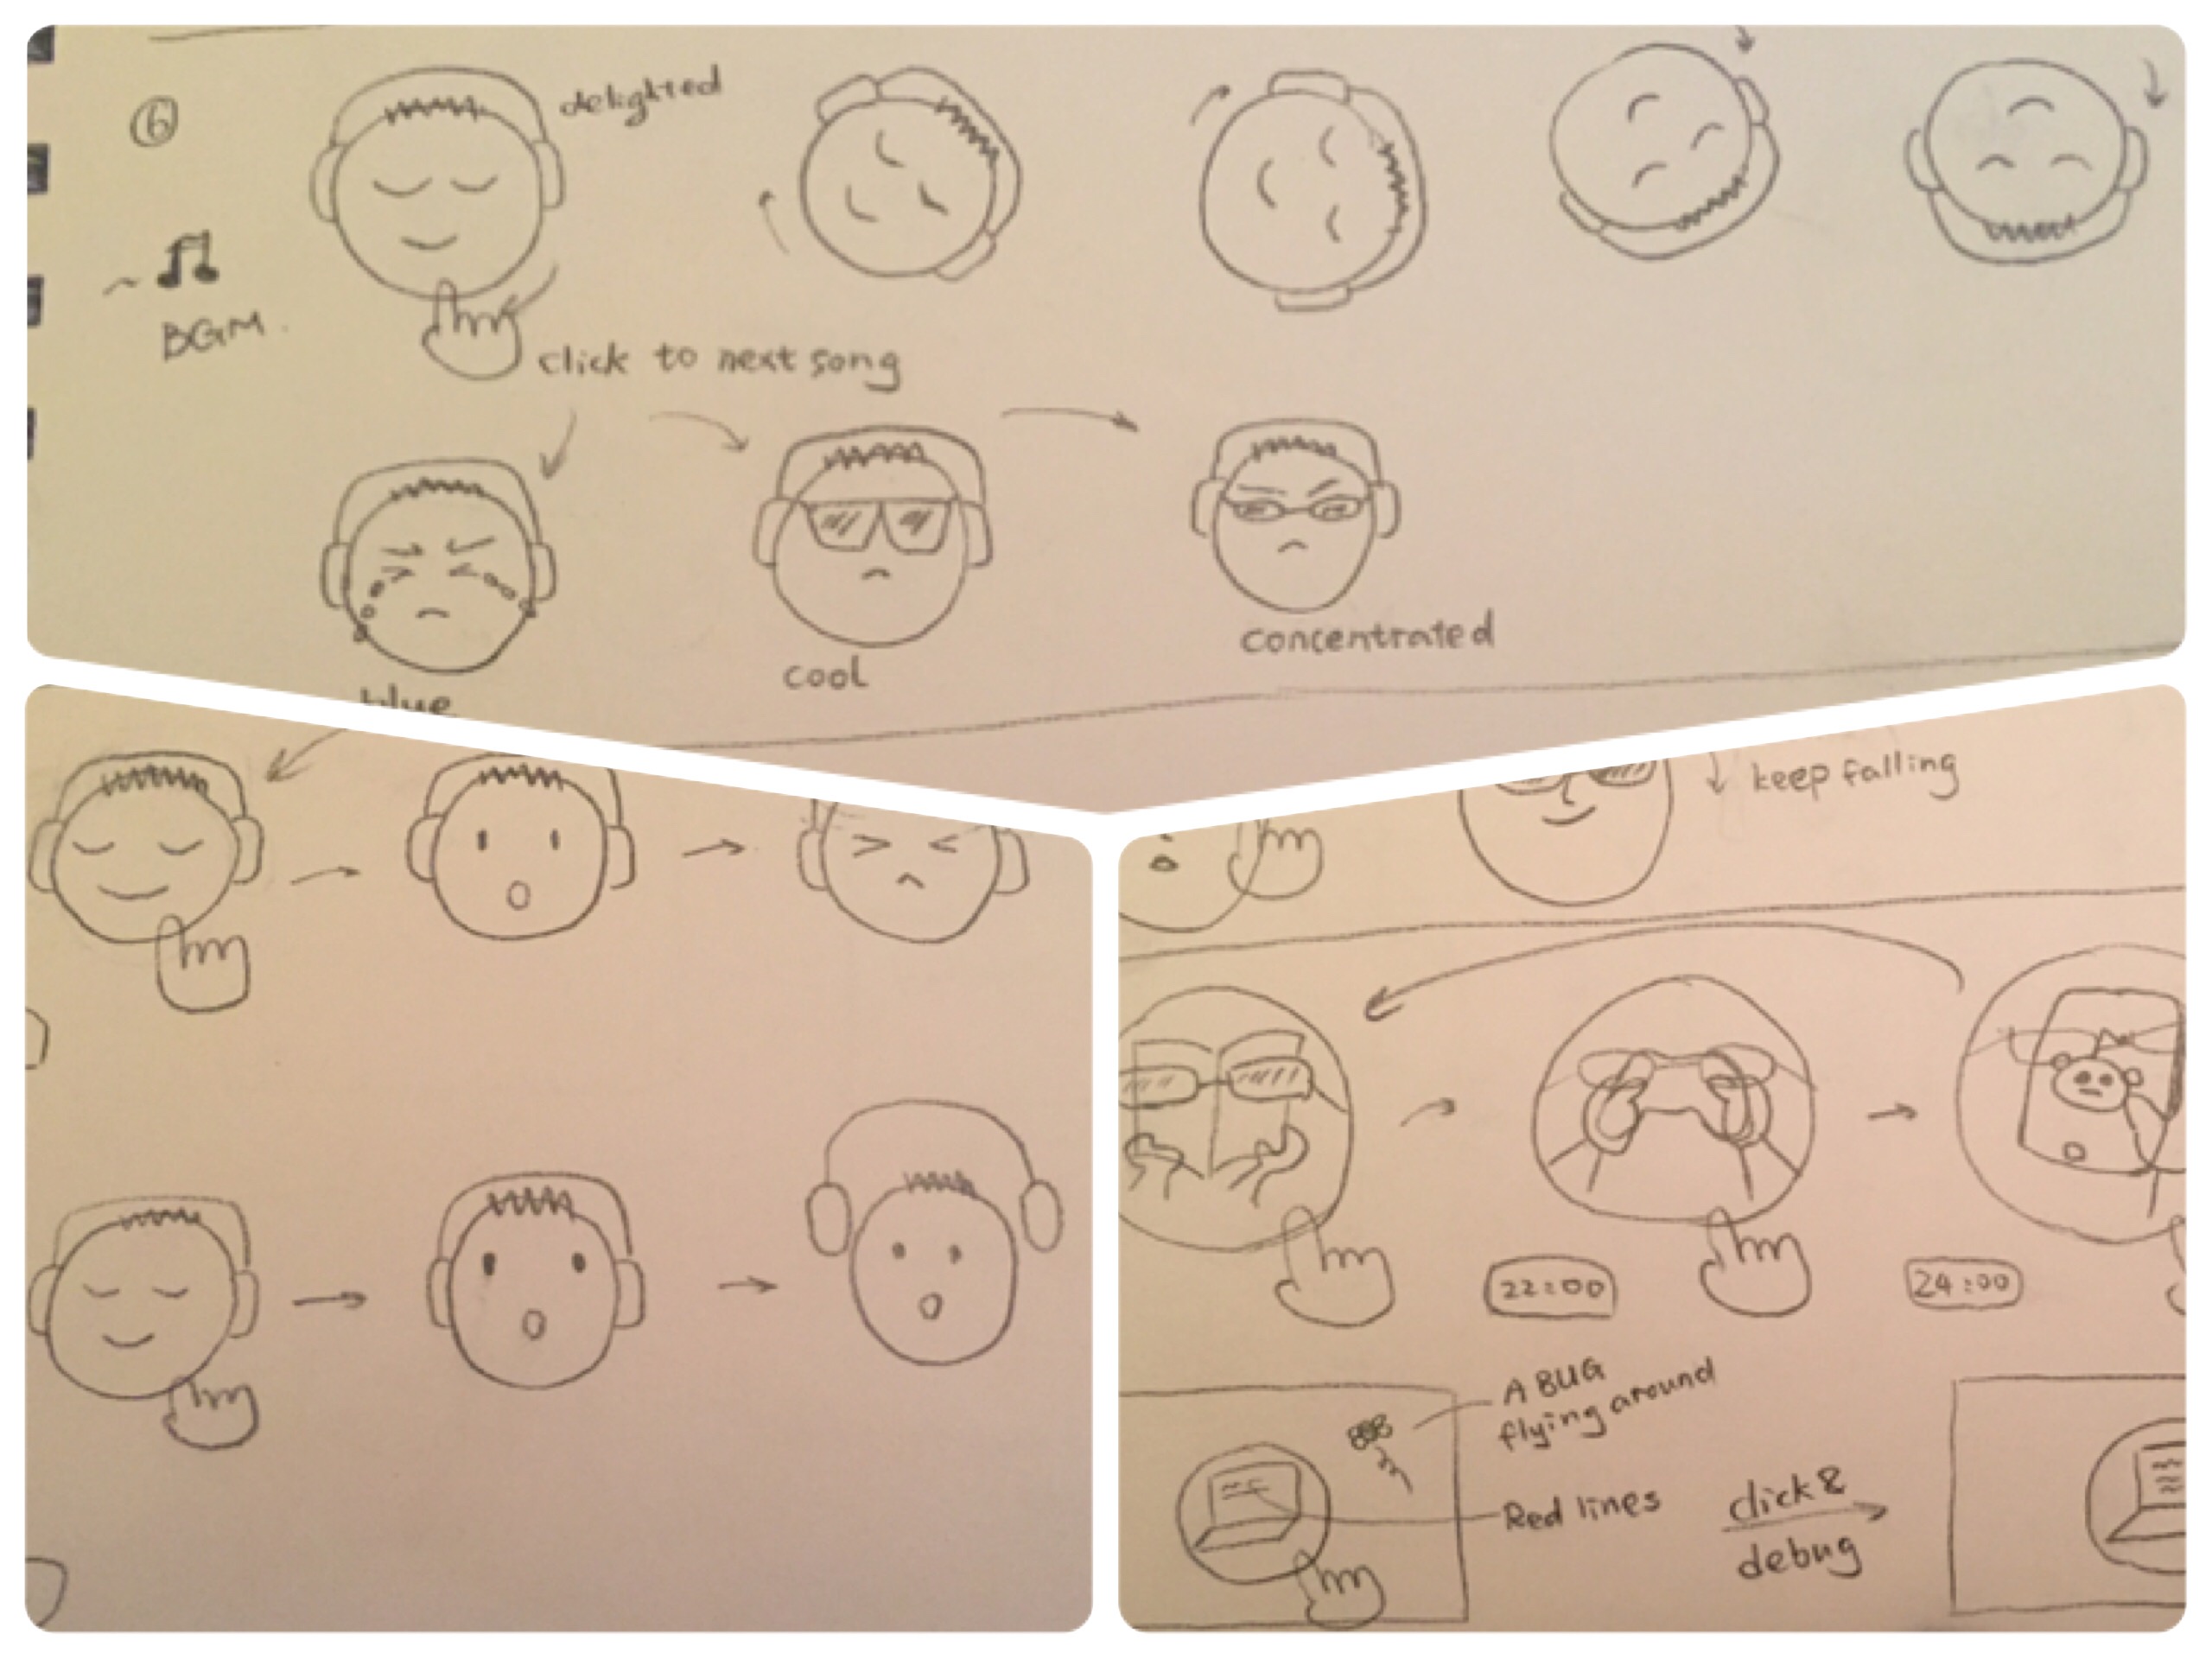 ⑥
delighted
BGM.
click to next song
blue
cool
concentrated
keep falling
22:00
24:00
A BUG
flying around
Red lines
click &
debug